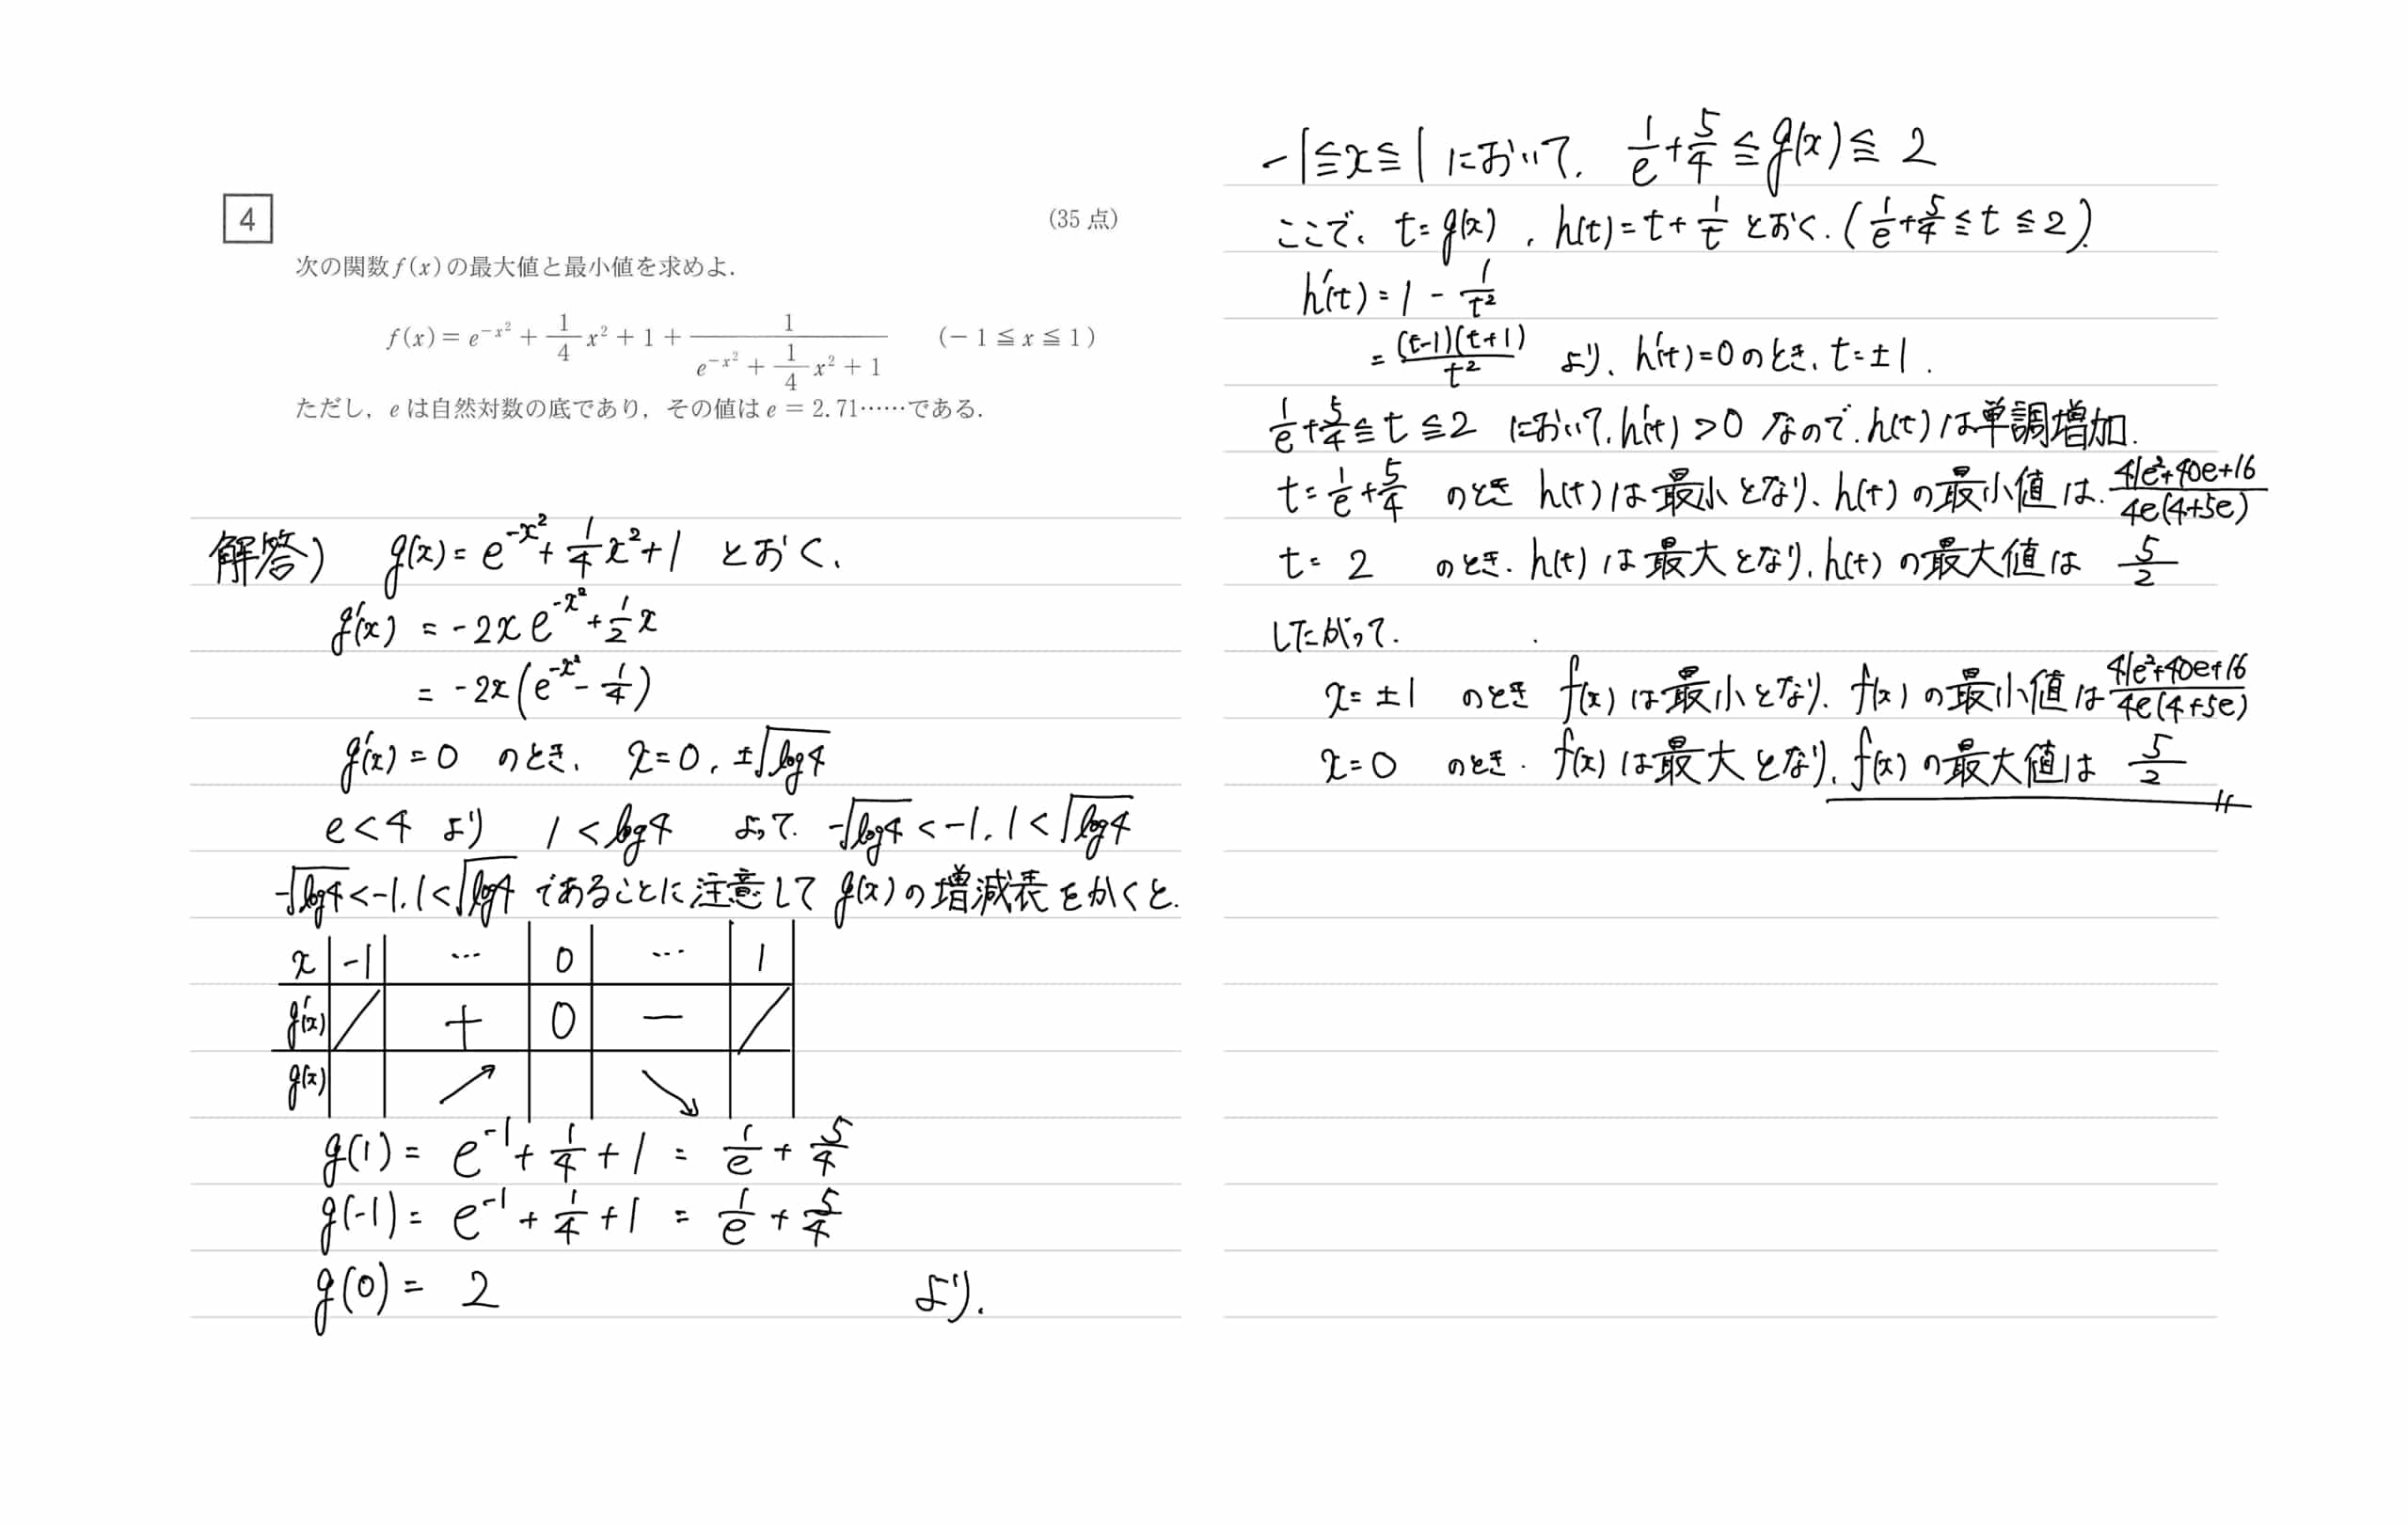 4
(35 点)
次の関数 f(x) の最大値と最小値を求めよ.
f(x) = e^{-x²} + 1/4 x² + 1 + 1/(e^{-x²} + 1/4 x² + 1) (－1 ≦ x ≦ 1)
ただし，e は自然対数の底であり，その値は e = 2.71……である.
解答) g(x) = e^{-x²} + 1/4 x² + 1 とおく.
g'(x) = -2x e^{-x²} + 1/2 x
= -2x(e^{-x²} - 1/4)
g'(x) = 0 のとき, x = 0, ±√log4
e < 4 より 1 < log4 よって. -√log4 < -1, 1 < √log4
-√log4 < -1, 1 < √log4 であることに注意して g(x) の増減表をかくと.
x -1 … 0 … 1
g'(x) ／ + 0 － ／
g(x) ↗ ↘
g(1) = e^{-1} + 1/4 + 1 = 1/e + 5/4
g(-1) = e^{-1} + 1/4 + 1 = 1/e + 5/4
g(0) = 2 より.
-1 ≦ x ≦ 1 において, 1/e + 5/4 ≦ g(x) ≦ 2
ここで, t = g(x), h(t) = t + 1/t とおく. (1/e + 5/4 ≦ t ≦ 2).
h'(t) = 1 - 1/t²
= (t-1)(t+1)/t² より, h'(t) = 0 のとき, t = ±1.
1/e + 5/4 ≦ t ≦ 2 において, h'(t) > 0 なので, h(t) は単調増加.
t = 1/e + 5/4 のとき h(t) は最小となり, h(t) の最小値は. (41e²+40e+16)/(4e(4+5e))
t = 2 のとき. h(t) は最大となり, h(t) の最大値は 5/2
したがって.
x = ±1 のとき f(x) は最小となり, f(x) の最小値は (41e²+40e+16)/(4e(4+5e))
x = 0 のとき. f(x) は最大となり, f(x) の最大値は 5/2